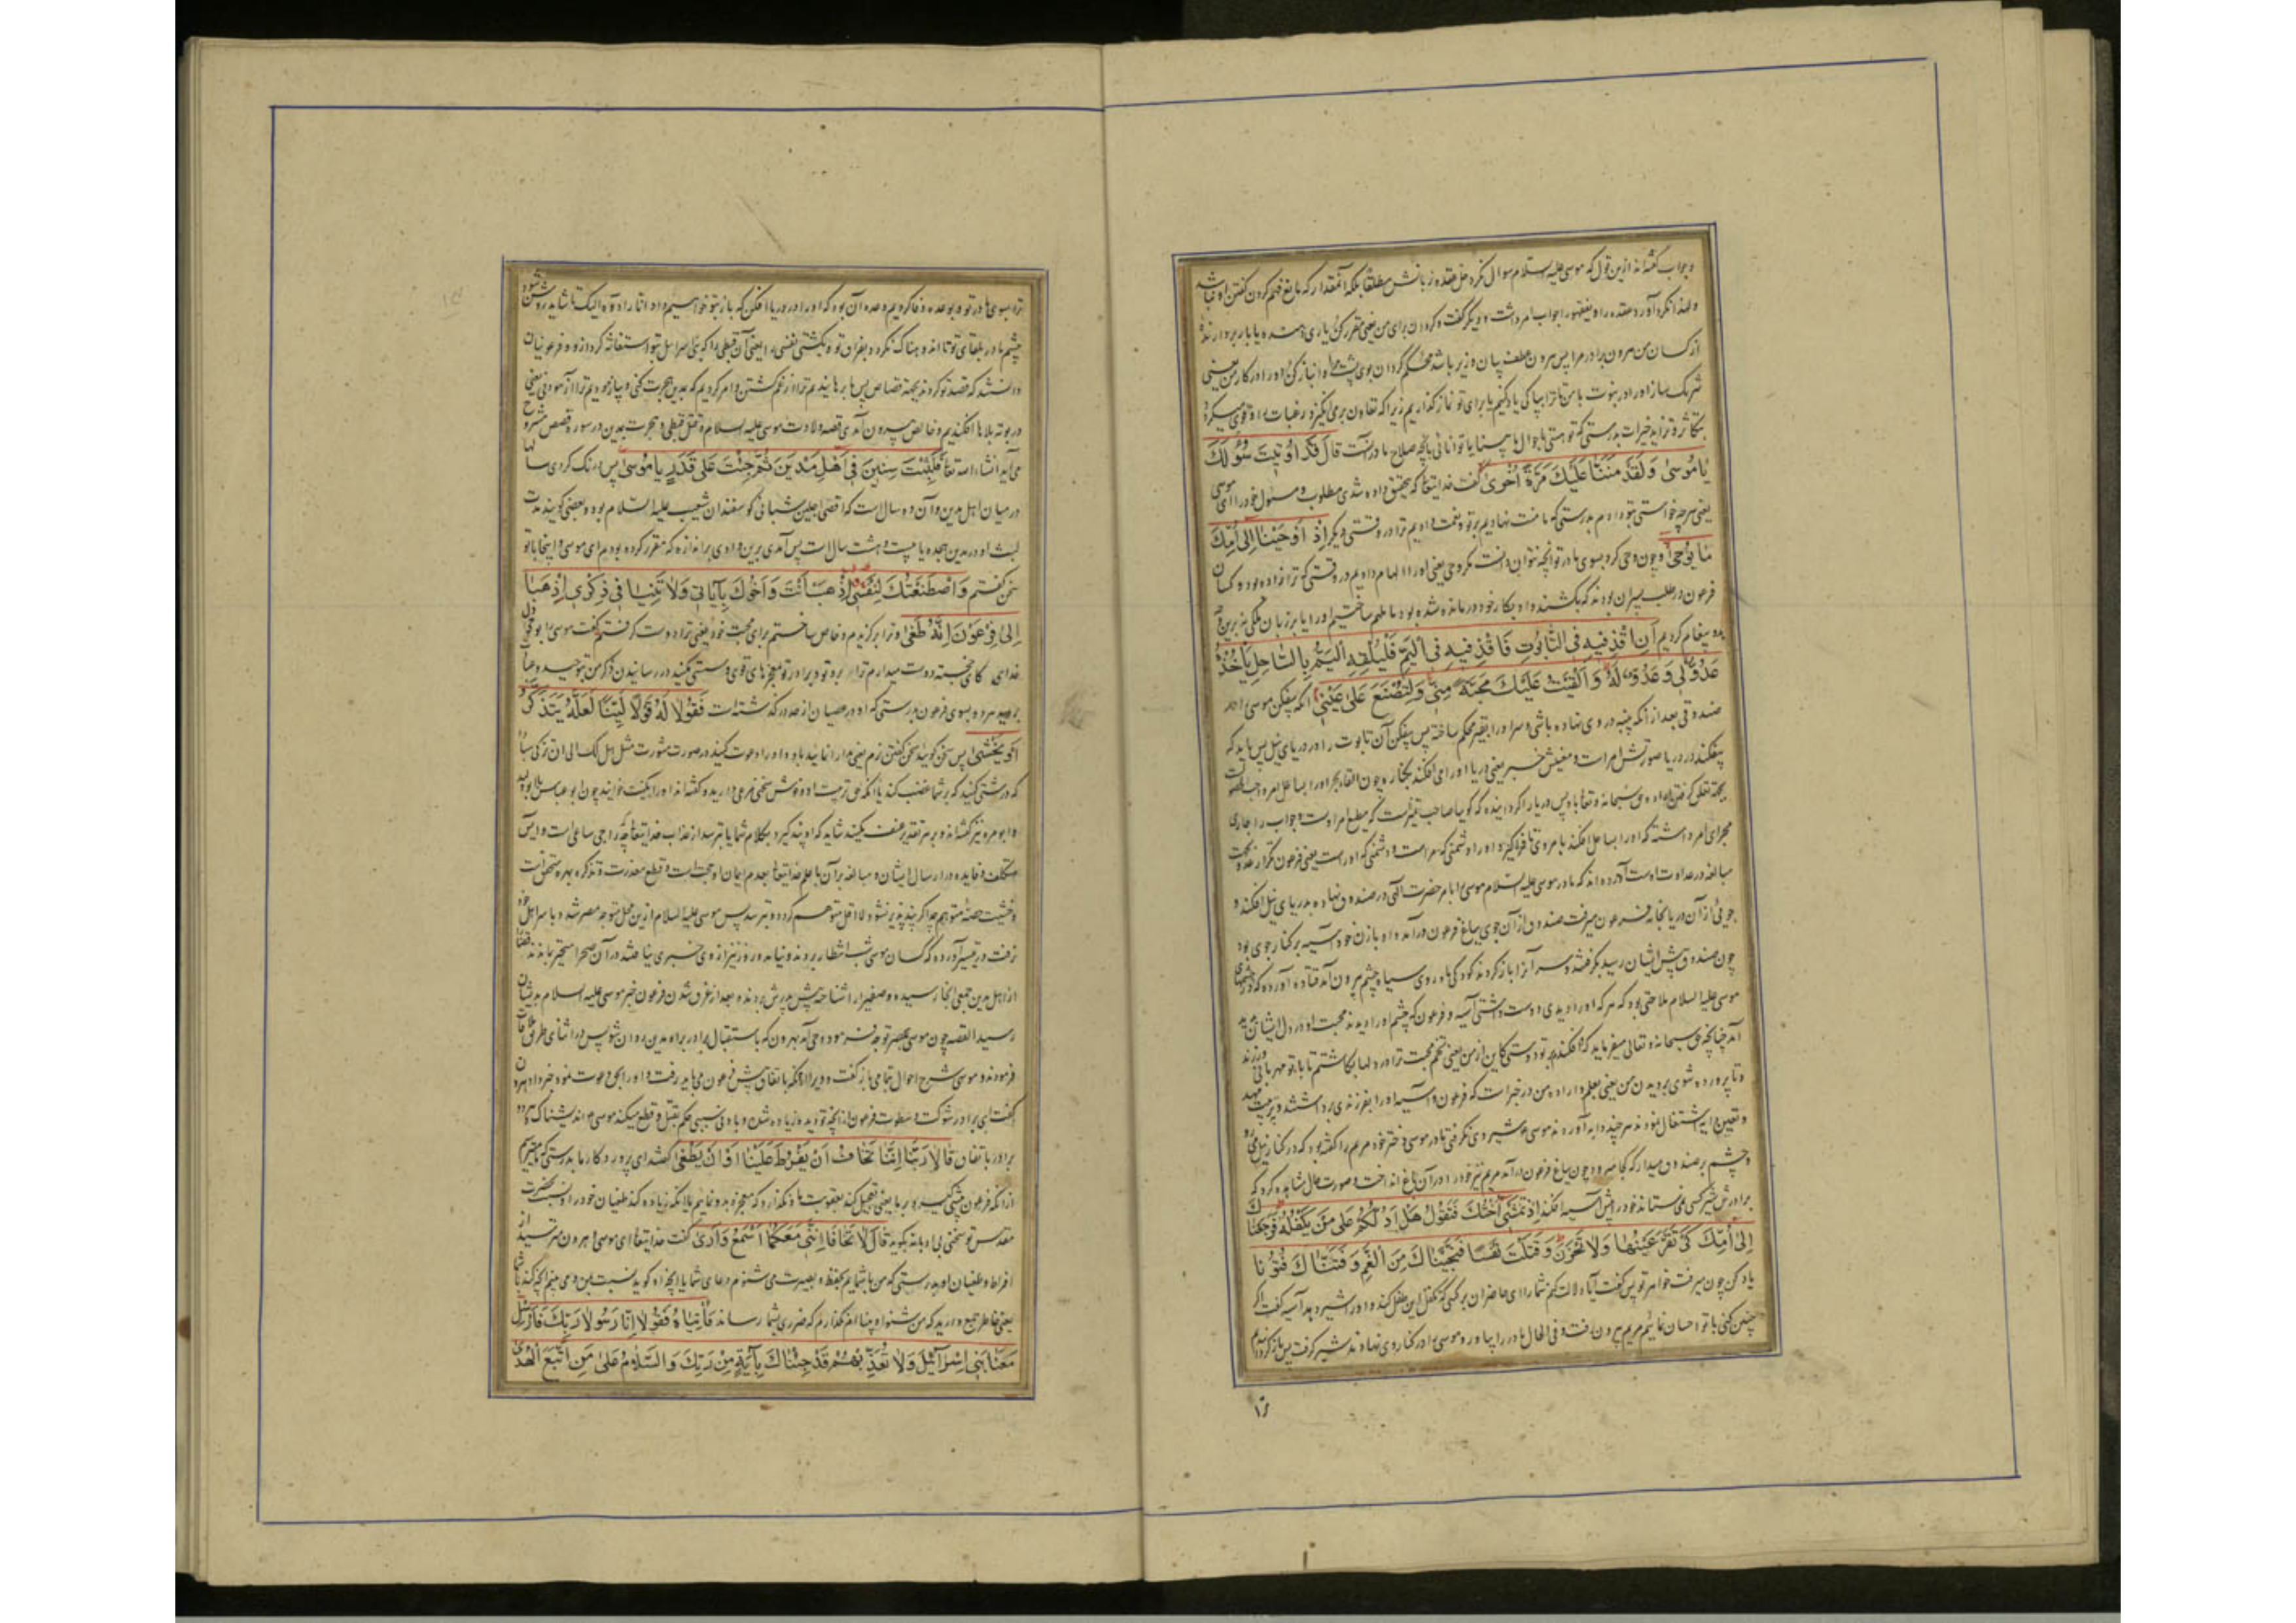 و جواب گفته‌اند ازین قول که موسی علیه السلام سوال نکرد حل عقده زبانش مطلقا بلکه آنمقدار که مانع فهم کردن گفتن او باشد
و لهذا نکره آورد عقده را و یفقهوا جواب امر داشت و دیگر گفت و گردان برای من یعنی مقرر کن یاری دهنده یا بار بردارنده
از کسان من هرون برادر مرا پس هرون عطف بیان وزیر باشد محکم گردان بوی پشت مرا و انباز کن او را در کار من یعنی
شریک ساز او را در نبوت با من تا ترا بپاکی یاد کنیم یا برای تو نماز گذاریم زیرا که تعاون
بتکاثر و تزاید خیرات بدرستی که تو هستی باحوال ما بینا یا توانائی بآنچه صلاح ما در آنست قال قد اوتیت سؤلک
یا موسی ولقد مننا علیک مرة اخری گفت خدایتعالی که بتحقیق داده شدی مطلوب و مسئول خود را ای موسی
یعنی هرچه خواستی بتو دادم بدرستی که ما منت نهادیم بر تو و نعمت دادیم ترا در وقتی دیگر اذ اوحینا الی امک
ما یوحی چون وحی کرد بسوی مادر تو آنچه نتوان دانست مگر بوحی یعنی او را الهام دادیم در وقتی که ترا زاده بود و کسان
فرعون در طلب پسران بودند که بکشند و او بکار خود درمانده شده بود ما ملهم ساختیم او را یا بر زبان ملکی
پیغام کردیم ان اقذفیه فی التابوت فاقذفیه فی الیم فلیلقه الیم بالساحل یأخذه
عدو لی وعدو له والقیت علیک محبة منی ولتصنع علی عینی آنکه بیفکن موسی را در
صندوقی بعد از آنکه پنبه در وی نهاده باشی و سر او را بقیر محکم ساخته پس بیفکن آن تابوت را در دریای نیل پس باید که
بیفکند در دریا صورتش امر است و معنیش خبر یعنی دریا او را می افکند بکناره چون القاء بحر او را بساحل امر واجب
مجرای امر داشته که او را بساحل افکند یا امر وی تا فراگیرد او را دشمنی که مراست و دشمنی که او راست یعنی فرعون تکرار عدو بجهت
مبالغه در عداوت اوست آورده‌اند که مادر موسی علیه السلام موسی را بامر حضرت الهی در صندوق نهاده بدریای نیل افکند و
جوئی از آن دریا بخانه فرعون میرفت صندوق از آن جوی بباغ فرعون درآمد و او با زن خود آسیه بر کنار جوی بود
چون صندوق پیش ایشان رسید بگرفتند و سر آنرا باز کردند کودکی ماه روی سیاه چشم بیرون آمد قتاده آورده که در چشمهای
موسی علیه السلام ملاحتی بود که هر که او را دیدی دوست داشتی آسیه و فرعون که چشم او را دیدند محبت او در دل ایشان پدید
آمد چنانچه حق سبحانه و تعالی میفرماید که افکندم بر تو دوستی کاین از من یعنی تخم محبت ترا در دلها بکاشتم تا با تو مهربانی ورزند
و تا پرورده شوی بر دیدن من یعنی بعلم و اراده من در خبر است که فرعون و آسیه او را بفرزندی برداشتند و بترتیب مهد
و تعیین دایه اشتغال نمودند هر چند دایه آوردند موسی شیر وی نگرفتی مادر موسی دختر خود مریم را گفته بود که در کنار نیل می رو
و چشم بر صندوق میدار که کجا میرود چون بباغ فرعون درآمد مریم نیز خود را در آن باغ انداخت و صورت حال مشاهده کرد که
برادرش شیر کسی نمی ستاند خود را پیش آسیه افکند اذ تمشی اختک فتقول هل ادلکم علی من یکفله فرجعناک
الی امک کی تقر عینها ولا تحزن وقتلت نفسا فنجیناک من الغم وفتناک فتونا
یاد کن چون میرفت خواهر تو پس گفت آیا دلالت کنم شما را ای حاضران بر کسی که تکفل این طفل کند و او را شیر دهد آسیه گفت اگر
چنین کنی با تو احسان نمائیم مریم بیرون رفت و فی الحال مادر را بیاورد و موسی را در کنار وی نهادند شیر گرفت پس باز گردانیدیم
ترا
ترا بسوی مادر تو و بوعده وفا کردیم و وعده آن بود که او را در دریا افکن که باز بتو خواهیم داد انا رادوه الیک تا شاید روشن شود
چشم مادر بلقای تو تا اندوهناک نگردد بفراق تو و بکشتی نفسی را یعنی آن قبطی را که بنی اسرائیل بتو استغاثه کرد ازو و فرعونیان
دانستند که قصد تو کردند بجهة قصاص پس ما برهانیدیم ترا از غم کشتن و امر کردیم که بمدین هجرت کنی و بیازمودیم ترا آزمودنی یعنی
در بوته بلاها افکندیم و خالص بیرون آمدی قصه ولادت موسی علیه السلام و قتل قبطی و هجرت بمدین در سوره قصص مشروح
می آید انشاء الله تعالی فلبثت سنین فی اهل مدین ثم جئت علی قدر یا موسی پس درنگ کردی سالها
در میان اهل مدین و آن ده سال است که اقصی اجلین شبانی گوسفندان شعیب علیه السلام بود و بعضی گویند مدت
لبث او در مدین هجده یا بیست و هشت سال است پس آمدی برین وادی بر اندازه که مقرر کرده بودم ای موسی و اینجا با تو
سخن گفتم واصطنعتک لنفسی اذهب انت واخوک بآیاتی ولا تنیا فی ذکری اذهبا
الی فرعون انه طغی و ترا برگزیدم و خاص ساختم برای محبت خود یعنی ترا دوست گرفتم گفت موسی را بو
خدای دوست میدارم ترا برو تو و برادر تو بمعجزهای قوی و سستی مکنید در رسانیدن ذکر من بتوحید و
بروید هر دو بسوی فرعون بدرستی که او در عصیان از حد درگذشته است فقولا له قولا لینا لعله یتذکر
او یخشی پس سخن گویید سخن گفتن نرم یعنی مدارا نمائید با او و او را دعوت کنید در صورت مشورت مثل هل لک الی ان تزکی مبادا
که درشتی کنید که بر شما غضب کند یا آنکه حق تربیت او و خوش سخنی مرعی دارید و گفته‌اند او را بکنیت خوانید چون ابو عباس یا ابو ولید
و ابو مره نیز گفته‌اند و بر هر تقدیر عنف مکنید شاید که او پند گیرد بکلام شما یا بترسد از عذاب خدایتعالی
متکلف و فایده در ارسال ایشان و مبالغه بر آن با علم خدایتعالی بعدم ایمان او حجت است و قطع معذرت و تذکره بهره متحقق است
و خشیت حصه متوهم چه اگر پند پذیر نشود لا اقل متوهم گردد و بترسد پس موسی علیه السلام ازین محل متوجه مصر شد و با سر اهل خود
نرفت در تیسیر آورده که کسان موسی شب انتظار بردند و نیامد و روز نیز از وی خبری نیافتند در آن صحرا متحیر بماندند قضا را
از اهل مدین جمعی آنجا رسیده و صغیرا را شناخته پیش پدرش بردند و بعد از غرق شدن فرعون خبر موسی علیه السلام بدیشان
رسید القصه چون موسی بمصر توجه فرمود وحی آمد بهرون که باستقبال برادر براه مدین روان شو پس در اثنای طریق ملاقات
فرمودند و موسی شرح احوال تمامی باز گفت و دیگر آنکه باتفاق پیش فرعون می باید رفت و او را بحق دعوت نمود خبر داد هرون
گفت ای برادر شوکت و سطوت فرعون از آنچه تو دیده زیاده شده و بادنی سببی حکم بقتل و قطع میکند موسی اندیشناک شد
برادر باتفاق قالا ربنا اننا نخاف ان یفرط علینا او ان یطغی گفتند ای پروردگار ما بدرستی که ما میترسیم
از آنکه فرعون پیشی گیرد بر ما یعنی تعجیل کند بعقوبت ما و نگذارد که معجزه بدو نمائیم یا آنکه زیاده کند طغیان خود را و نسبت بحضرت
مقدس تو سخنی بی ادبانه بگوید قال لا تخافا اننی معکما اسمع واری گفت خدایتعالی ای موسی و هرون مترسید از
افراط و طغیان او بدرستی که من با شما بحفظ و بصیرت می شنوم دعای شما یا آنچه او گوید نسبت بمن و می بینم آنچه کند با شما
یعنی خاطر جمع دارید که من شنوا و بینا ام نگذارم که ضرری بشما رساند فأتیاه فقولا انا رسولا ربک فارسل
معنا بنی اسرآئیل ولا تعذبهم قد جئناک بآیة من ربک والسلام علی من اتبع الهدی